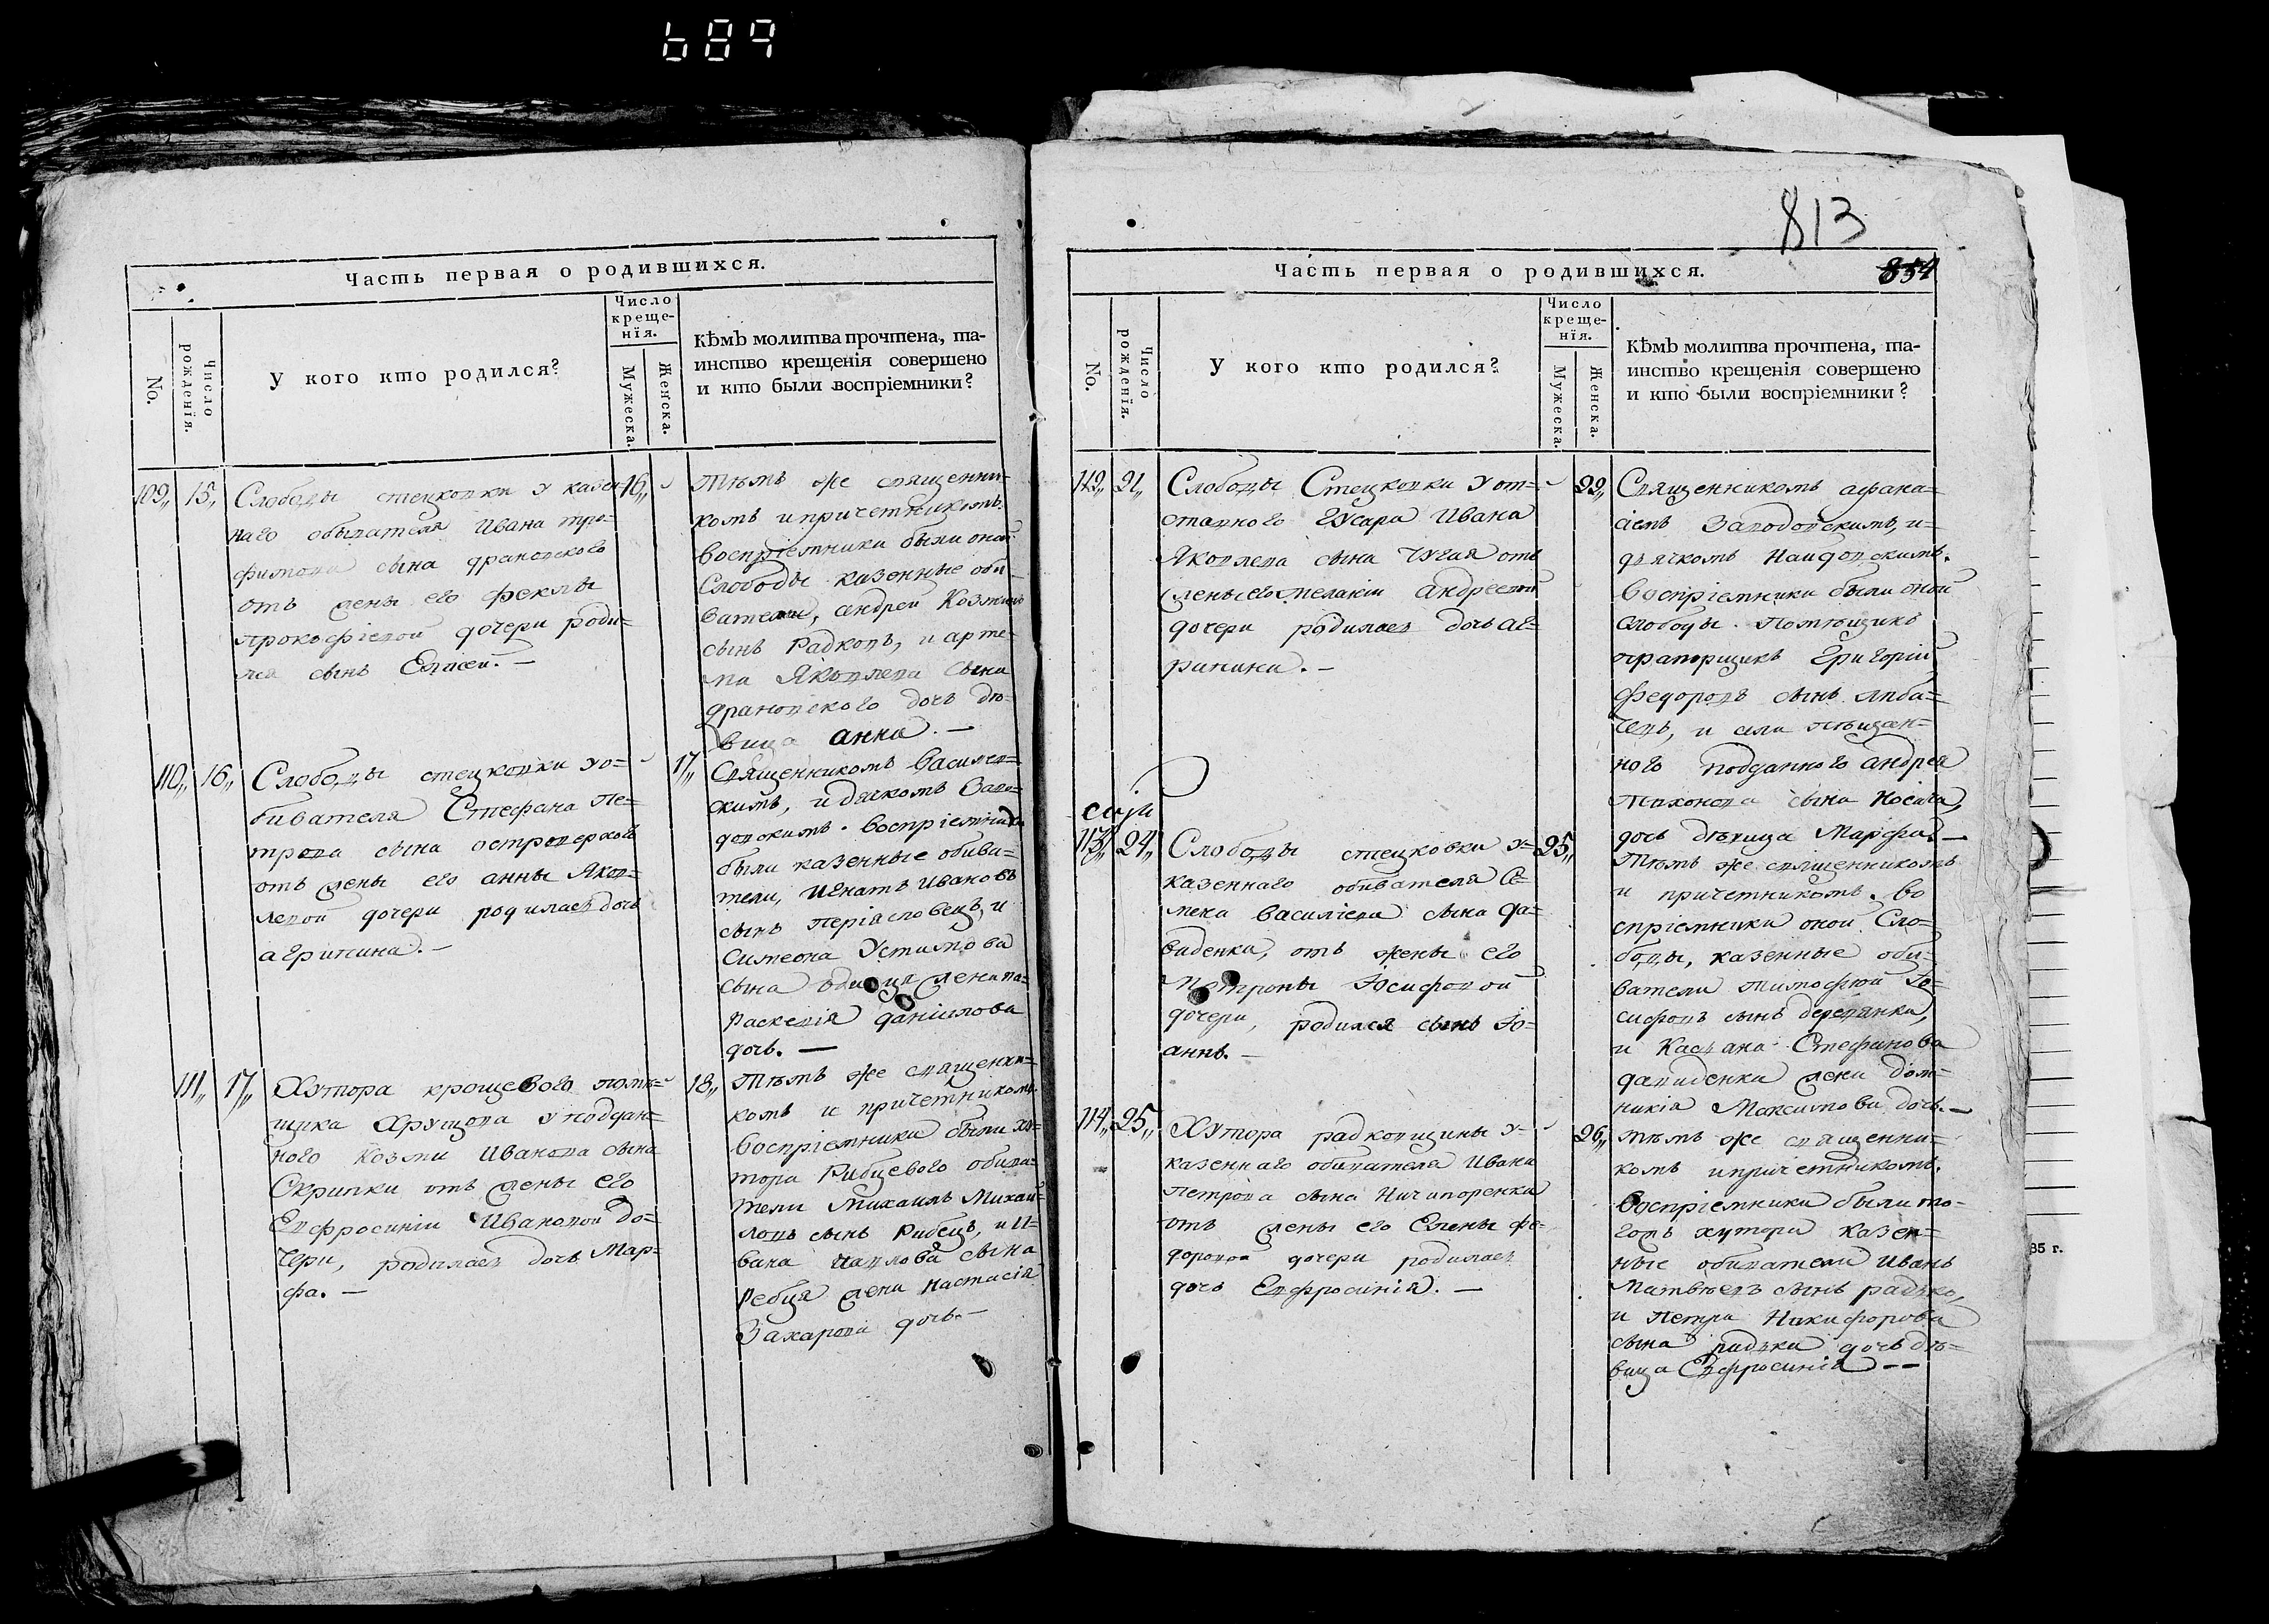 689
Часть первая о родившихся.
No.
Число рожденїя.
У кого кто родился?
Число креще-нїя.
Мужеска.
Женска.
Кѣмъ молитва прочтена, та-
инство крещенія совершено
и кто были воспріемники?
109,, 15,, Слободы стецковки у казен- 16,,
наго обывателя Ивана тро-
фимова сына драновского
отъ жены его феклы
прокофіевой дочери роди-
лся сынъ Елисей. —
Тѣмъ же священни-
комъ и причетникомъ.
воспріемники были оной
Слободы казенные оби-
ватели, андрей Козминъ
сынъ Радковъ, и арте-
ма Яковлева сына
драновского дочь дѣ-
вица анна. —
110,, 16,, Слободы стецковки у о-
бивателя Стефана пе-
трова сына островерхого
отъ жены его анны Яков-
левой дочери родилась дочь
агрипина. —
17,, Священникомъ Василев-
скимъ, и дячкомъ Заво-
довскимъ. воспріемники
были казенные обива-
тели, Игнатъ Ивановъ
сынъ періасловецъ, и
Симеона Устимова
сына жена па-
раскевія даніилова
дочь. —
111,, 17,, Хутора крощевого помѣ-
щика Хрущова у поддан-
ного Козми Иванова сына
Скрипки отъ жены его
Евфросиніи Ивановой до-
чери, родилась дочь Мар-
фа. —
18,, Тѣмъ же священни-
комъ и причетникомъ.
воспріемники были ху-
тора Рибцевого обива-
тели Михаилъ Михай-
ловъ сынъ Рибецъ, и И-
вана павлова сына
Ребця жена настасія
Захарова дочь. —
813
854
Часть первая о родившихся.
No.
Число рожденїя.
У кого кто родился?
Число креще-нїя.
Мужеска.
Женска.
Кѣмъ молитва прочтена, та-
инство крещенія совершено
и кто были воспріемники?
112,, 21,, Слободы Стецковки у от-
ставного гусара Ивана
Яковлева сына Чугая отъ
жены его меланіи андреевой
дочери родилась дочь аг-
рипина. —
22,, Священникомъ афана-
сіемъ Заводовскимъ, и
дячкомъ Найдовскимъ.
воспріемники были оной
слободы помѣщикъ
прапорщикъ Григорій
Федоровъ сынъ
и села пѣщан-
ного подданного андрея
Тихонова сына Носача,
дочь дѣвица Марфа. —
113,, 24,, Слободы стецковки у 25,,
казеннаго обивателя Се-
мена василіева сына да-
виденка, отъ жены его
матроны Іосифовой
дочери, родился сынъ Іо-
аннъ. —
Тѣмъ же священникомъ
и причетникомъ. во
спріемники оной Сло-
боды, казенные оби-
ватели тимофей Іо-
сифовъ сынъ деревянка,
и Касьана Стефанова
давиденка жена дом-
никія Максимова дочь. —
114,, 25,, Хутора радковщины у
казеннаго обивателя Ивана
петрова сына Ничипоренка
отъ жены его Елены фе-
доровой дочери родилась
дочь Евфросинія. —
26,, тѣмъ же священни-
комъ и причетникомъ.
воспріемники были то-
гожъ хутора казен-
ные обиватели Иванъ
Матвѣевъ сынъ радько,
и петра Никифорова
сына радька дочь дѣ-
вица Евфросинія — —
85 г.